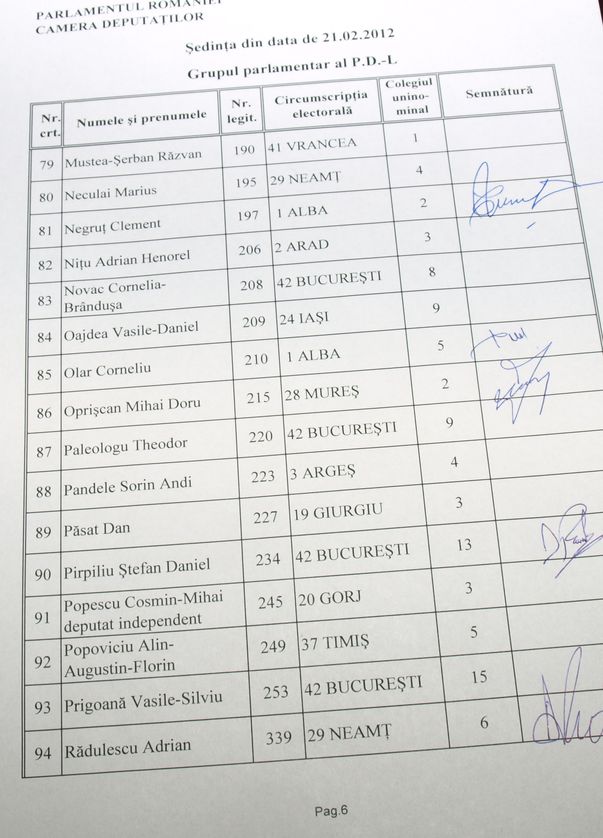 PARLAMENTUL ROMÂNIEI
CAMERA DEPUTAȚILOR
Ședința din data de 21.02.2012
Grupul parlamentar al P.D.-L
Nr. crt. Numele și prenumele Nr. legit. Circumscripția electorală Colegiul unino-minal Semnătură
79 Mustea-Șerban Răzvan 190 41 VRANCEA 1
80 Neculai Marius 195 29 NEAMȚ 4
81 Negruț Clement 197 1 ALBA 2
82 Nițu Adrian Henorel 206 2 ARAD 3
83 Novac Cornelia-
Brândușa 208 42 BUCUREȘTI 8
84 Oajdea Vasile-Daniel 209 24 IAȘI 9
85 Olar Corneliu 210 1 ALBA 5
86 Oprișcan Mihai Doru 215 28 MUREȘ 2
87 Paleologu Theodor 220 42 BUCUREȘTI 9
88 Pandele Sorin Andi 223 3 ARGEȘ 4
89 Păsat Dan 227 19 GIURGIU 3
90 Pirpiliu Ștefan Daniel 234 42 BUCUREȘTI 13
91 Popescu Cosmin-Mihai
deputat independent 245 20 GORJ 3
92 Popoviciu Alin-
Augustin-Florin 249 37 TIMIȘ 5
93 Prigoană Vasile-Silviu 253 42 BUCUREȘTI 15
94 Rădulescu Adrian 339 29 NEAMȚ 6
Pag.6